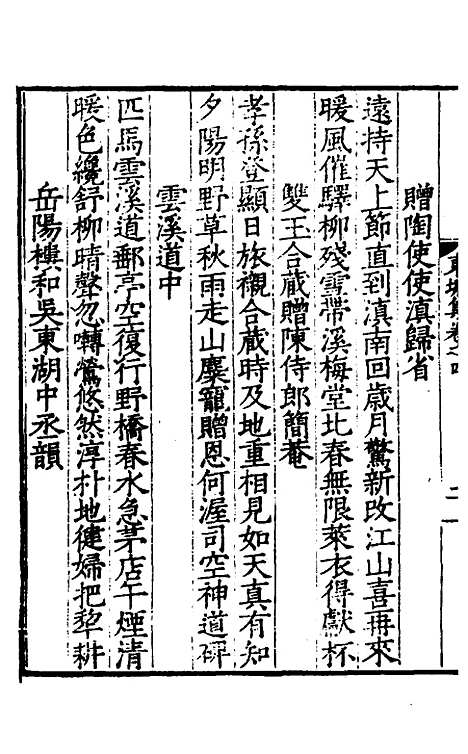 贈陶使使滇歸省
遠持天上節直到滇南回歲月驚新改江山喜再來
暖風催驛柳殘雪帶溪梅堂北春無限萊衣得獻杯
雙玉合藏贈陳侍郎簡菴
孝孫登顯日旅櫬合藏時及地重相見如天真有知
夕陽明野草秋雨走山麋寵贈恩何渥司空神道碑
雲溪道中
匹馬雲溪道郵亭空復行野橋春水急茅店午煙清
暖色纔舒柳晴聲忽囀鶯悠然淳朴地健婦把犂耕
岳陽樓和吳東湖中丞韻
集卷之四
二一